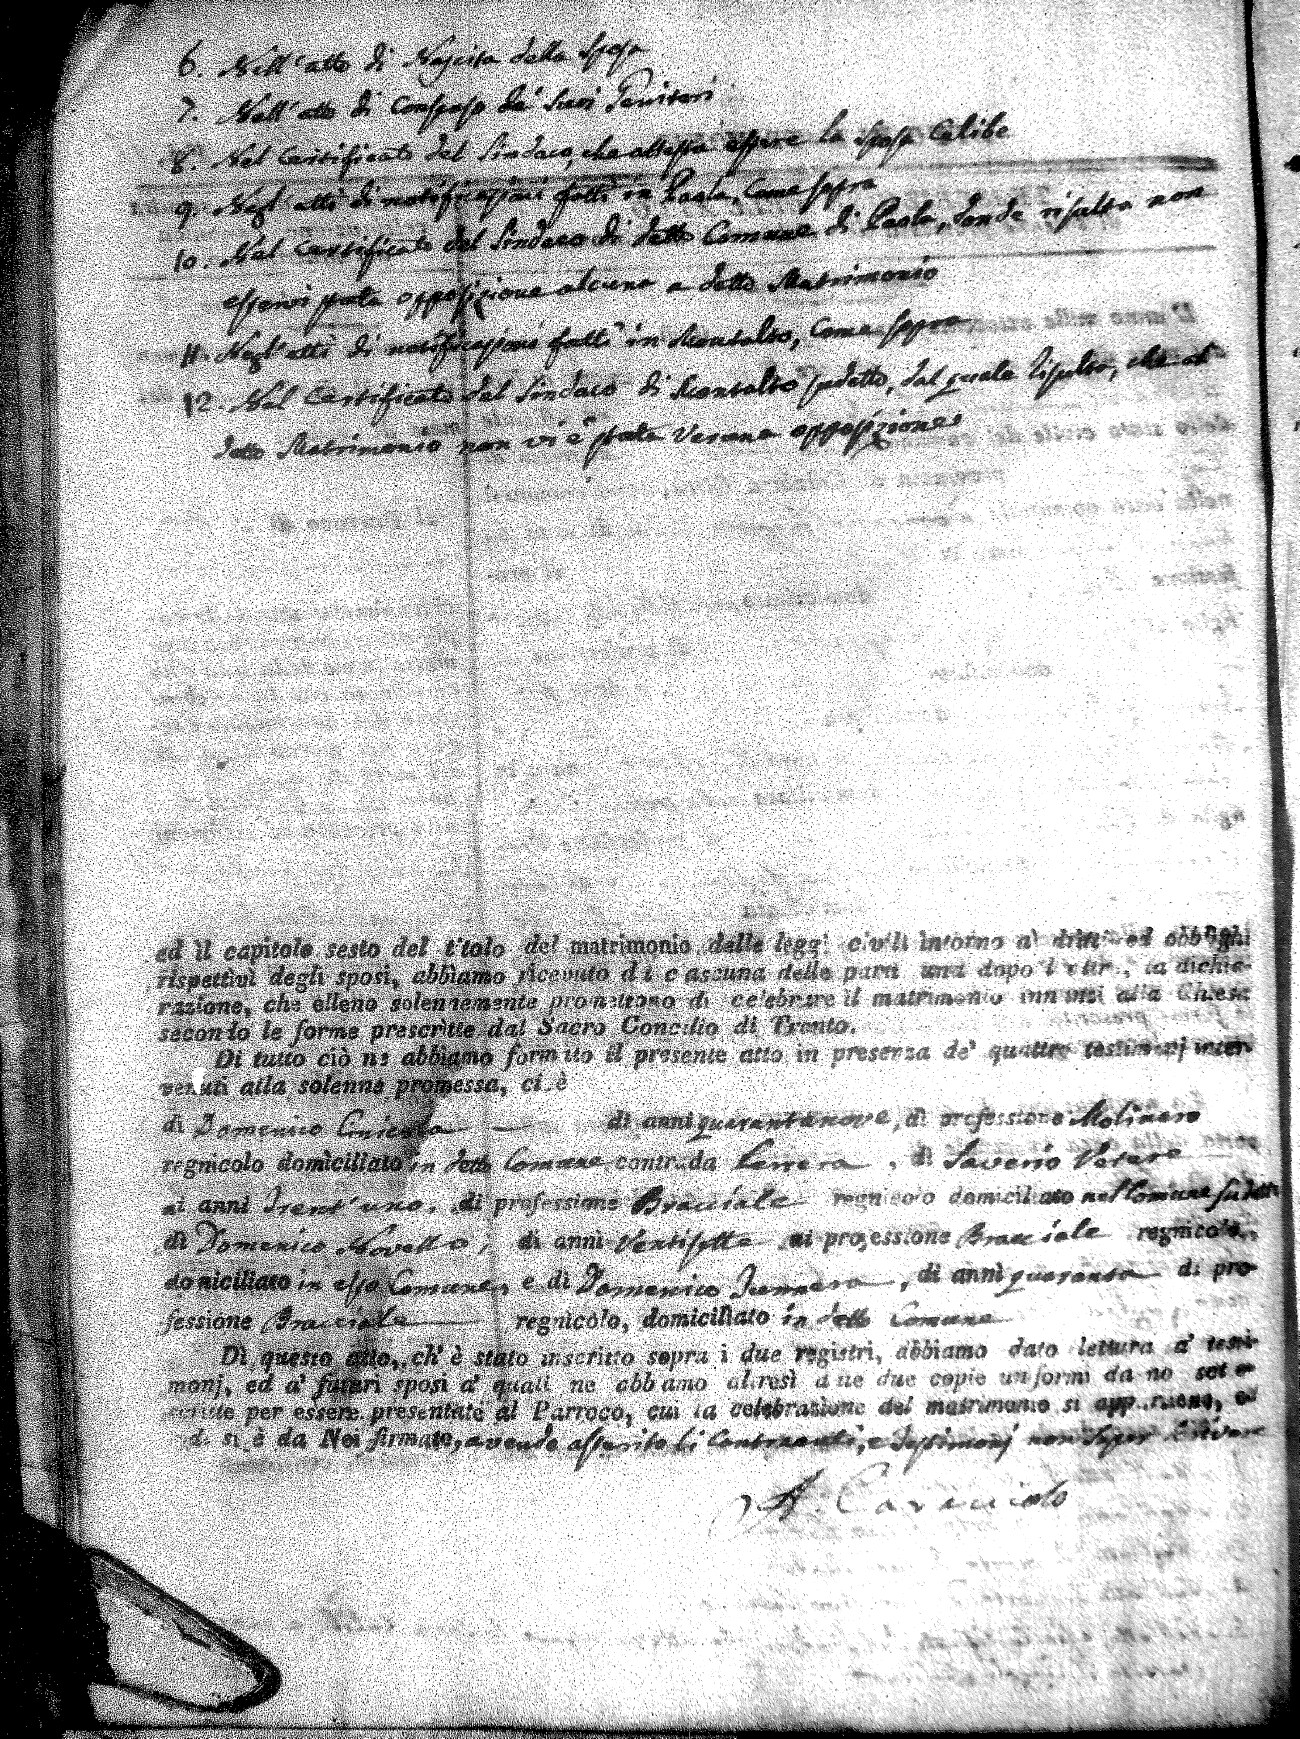 6. Nell'atto di Nascita della Sposa
7. Nell'atto di Consenso de' Suoi Genitori
8. Nel Certificato del Sindaco, che attesta essere la Sposa Celibe
9. Negl'atti di notificazioni fatti in Paola, Come Sopra
10. Nel Certificato del Sindaco di detto Comune di Paola, donde risulta non
esservi stata opposizione alcuna a detto Matrimonio
11. Negl'atti di notificazioni fatti in Montalto, Come Sopra
12. Nel Certificato del Sindaco di Montalto sudetto, dal quale risulta, che al
detto Matrimonio non vi è stata Veruna opposizione
ed il capitolo sesto del titolo del matrimonio delle leggi civili intorno a' dritti ed obblighi
rispettivi degli sposi, abbiamo ricevuto di ciascuna delle parti una dopo l'altra, la dichia-
razione, che elleno solennemente promettono di celebrare il matrimonio innanzi alla Chiesa
secondo le forme prescritte dal Sacro Concilio di Trento.
Di tutto ciò ne abbiamo formato il presente atto in presenza de' quattro testimonj inter-
venuti alla solenne promessa, cioè
di Domenico di anni quarantanove, di professione Molinaro
regnicolo domiciliato in detto Comune contrada , di Saverio
di anni Trent'uno, di professione Bracciale regnicolo domiciliato nel Comune sudetto
di Domenico Novello, di anni Ventisette di professione Bracciale regnicolo,
domiciliato in esso Comune, e di Domenico , di anni quaranta di pro-
fessione Bracciale regnicolo, domiciliato in detto Comune
Di questo atto, ch'è stato inscritto sopra i due registri, abbiamo dato lettura a' testi-
monj, ed a' futuri sposi a' quali ne abbiamo altresì date due copie uniformi da noi sotto-
scritte per essere presentate al Parroco, cui la celebrazione del matrimonio si appartiene, ed
indi si è da Noi firmato, avendo asserito li Contraenti, e Testimonj non Saper Scrivere
A. Caracciolo